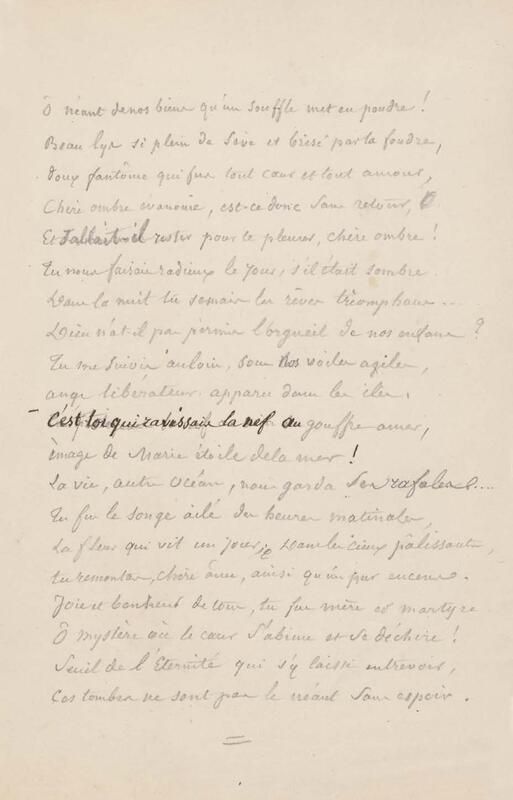 Ô néant de nos biens qu'un souffle met en poudre !
Beau lys si plein de sève et brisé par la foudre,
doux fantôme qui fus tout cœur et tout amour,
Chère ombre évanouie, est-ce donc sans retour,
Et fallait-il rester pour te pleurer, chère ombre !
Tu nous faisais radieux le jour, s'il était sombre
Dans la nuit tu semais les rêves triomphans ...
Dieu n'a t-il pas permis l'orgueil de nos enfans ?
Tu me suivis au loin, sous nos voiles agiles,
ange libérateur apparu dans les îles,
c'est toi qui ravissais la nef au gouffre amer,
image de Marie étoile de la mer !
La vie, autre Océan, nous garda ses rafales ....
Tu fus le songe ailé des heures matinales,
La fleur qui vit un jour, Dans les cieux pâlissants,
tu remontas, chère âme, ainsi qu'un pur encens.
Joie et bonheur de tous, tu fus mère et martyre
Ô mystère où le cœur s'abime et se déchire !
Seuil de l'Eternité qui s'y laisse entrevoir,
Ces tombes ne sont pas le néant sans espoir.